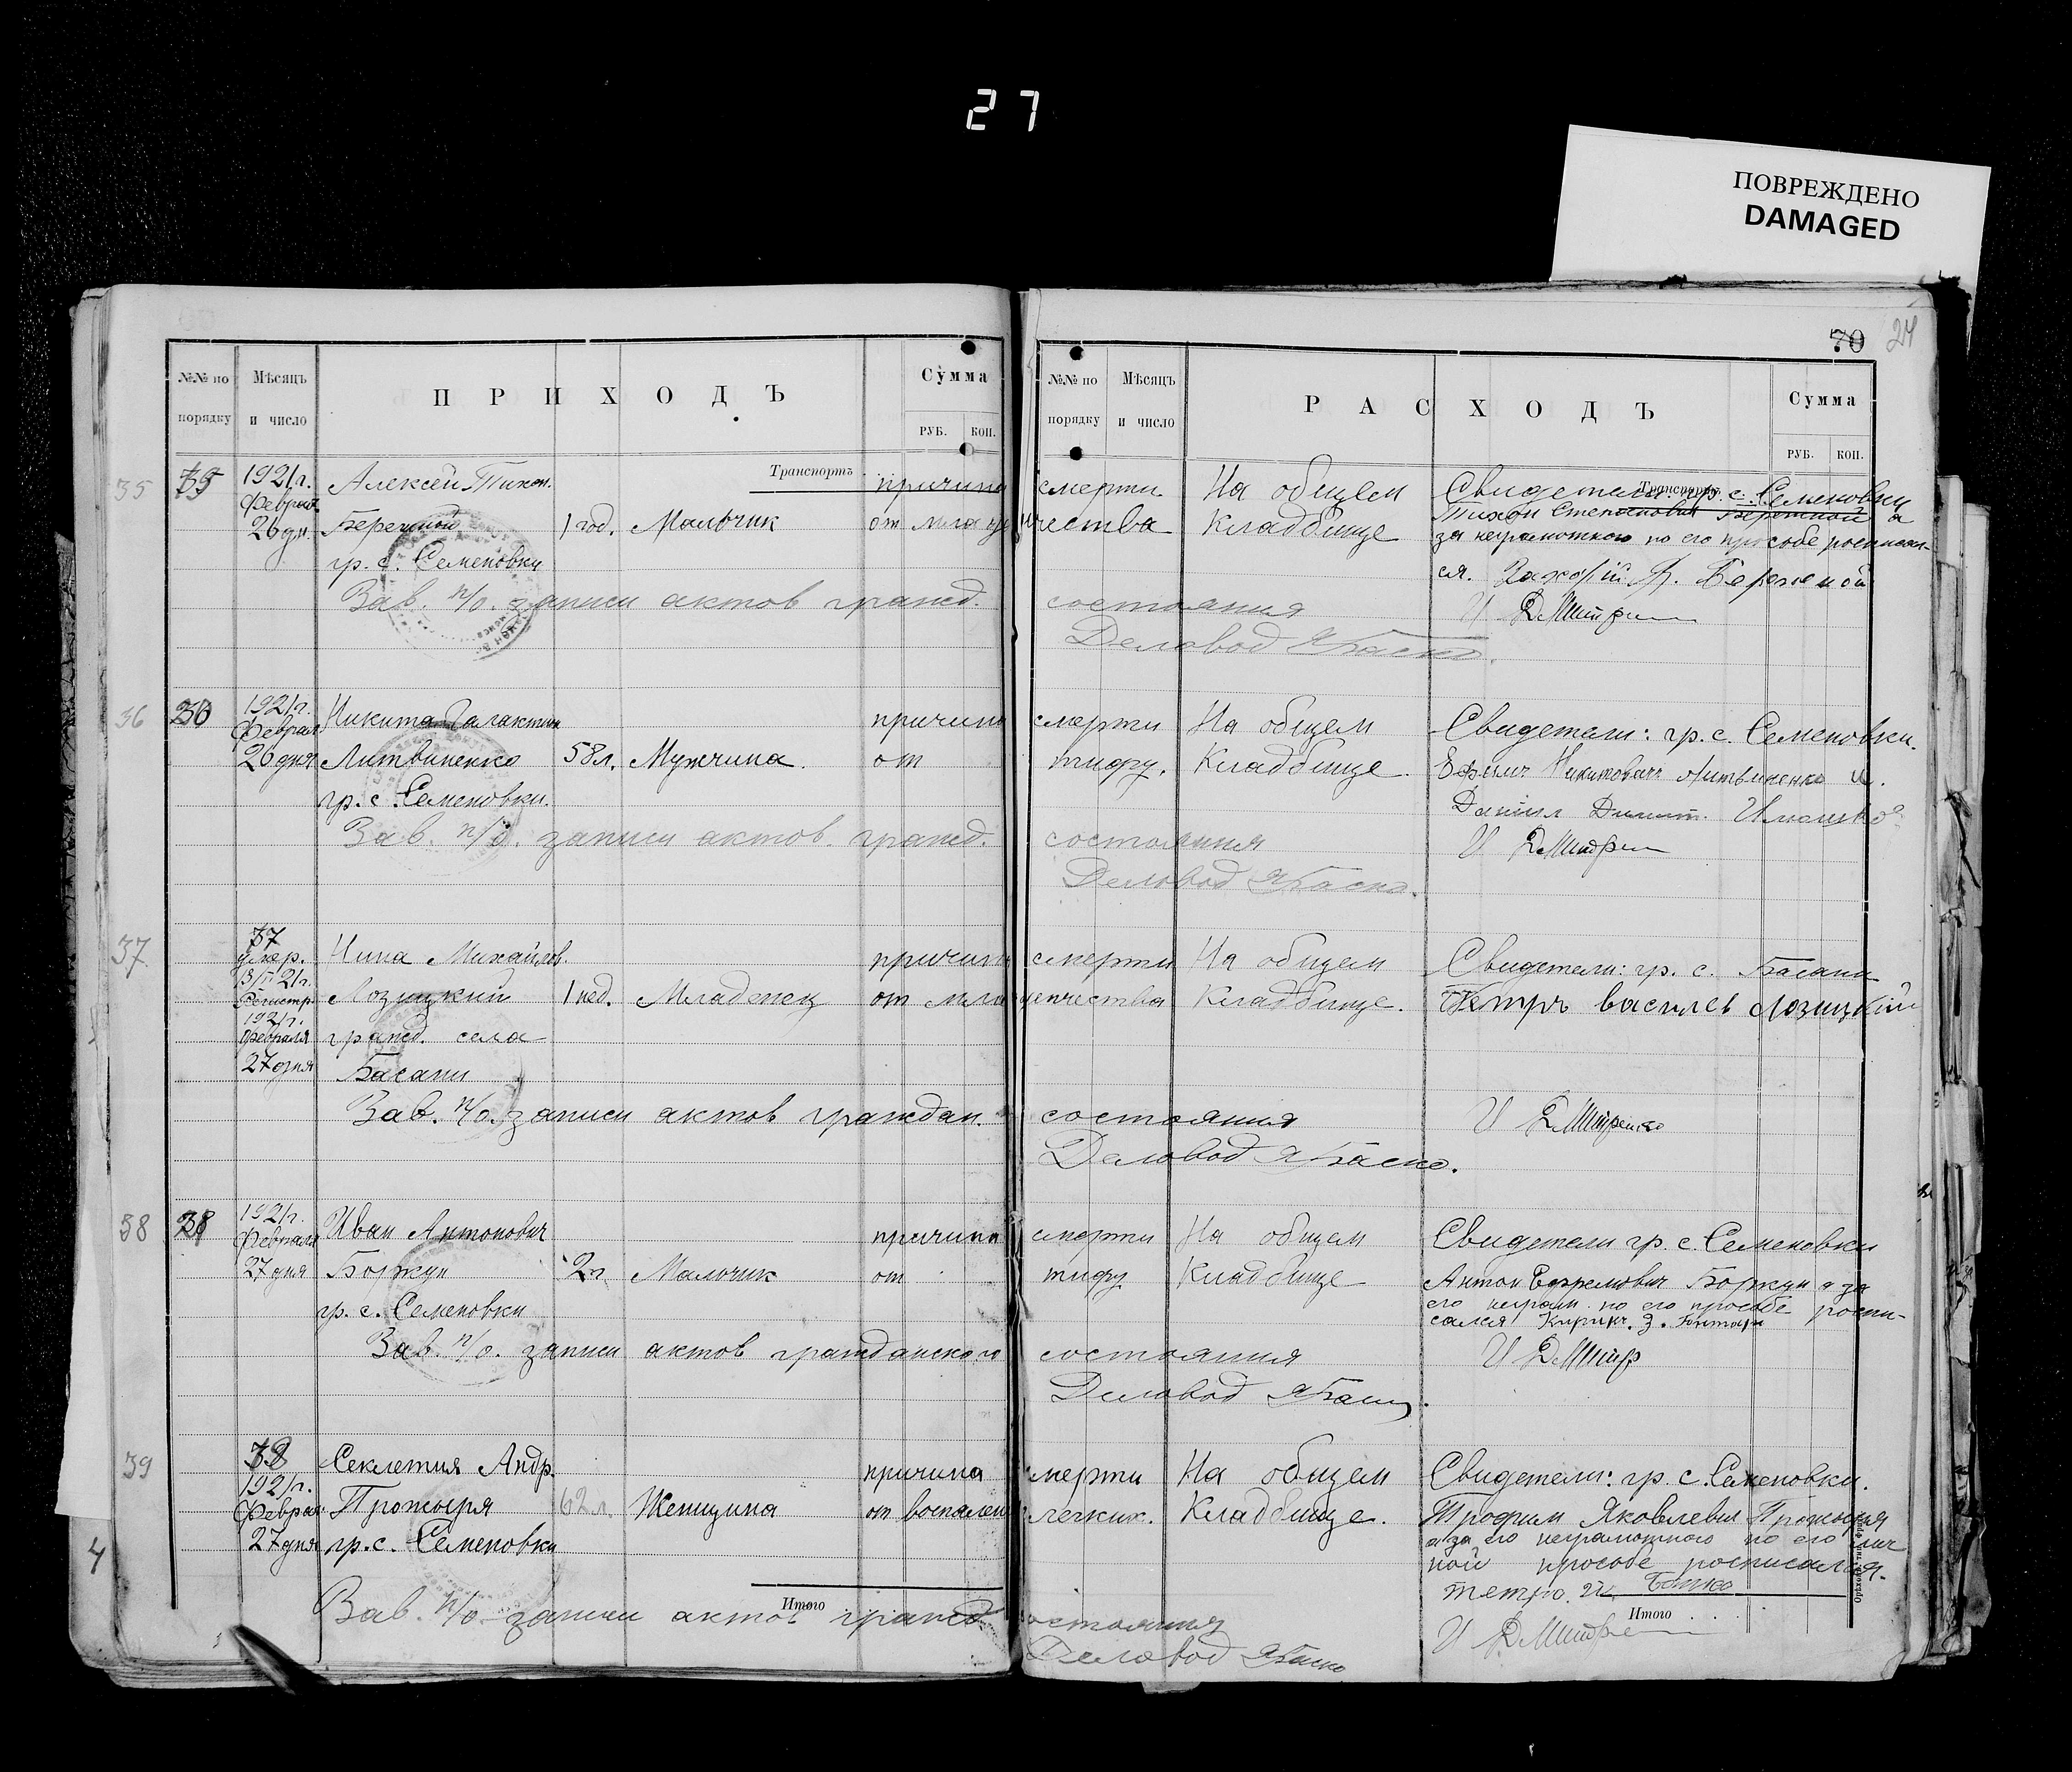 27
ПОВРЕЖДЕНО
DAMAGED
70 24
№№ по порядку
Мѣсяцъ и число
ПРИХОДЪ
Сумма
РУБ. КОП.
№№ по порядку
Мѣсяцъ и число
РАСХОДЪ
Сумма
РУБ. КОП.
Транспортъ
Транспортъ
35 35 1921г. Алексей Тихон. причина смерти На общем Свидетели: гр. с. Семеновки
Февраля
26 дн. Бережной 1 год. Мальчик от младенчества Кладбище Тихон Степанович Бережной а
за неграмотного по его просбе росписал-
гр. с. Семеновки ся. Бережной
Зав. п/о. записи актов гражд. состояния
Деловод
36 36 1921г. Никита Галактион причина смерти На общем Свидетели: гр. с. Семеновки.
Февраля
26 дня Литвиненко 58 л. Мужчина. от тифу. Кладбище. Ефим Никитович Литвиненко и.
гр. с. Семеновки. Данил Димит.
Зав. п/о. записи актов. гражд. состояния
Деловод
37. 37 Нина Михайлов. причина смерти На общем Свидетели: гр. с. Басани
умер.
13/II 21г.
Регистр. Лозицкий 1 нед. Младенец от младенчества Кладбище. Петръ василев Лозицкий
1921г.
Февраля гражд. села
27 дня Басани
Зав. п/о. записи актов граждан. состояния
Деловод
38 38 1921г. Иван Антонович причина смерти На общем Свидетели гр. с. Семеновки
Февраля
27 дня Боржун 2 г. Мальчик от тифу Кладбище Антон Ефремович Боржун а за
его неграм. по его просбе роспи-
гр. с. Семеновки сался Кирик. З.
Зав. п/о. записи актов гражданского состояния
Деловод
39 38 Секлетия Андр. причина смерти На общем Свидетели: гр. с. Семеновки.
1921г.
Февраля Прожыря 62 л. Женщина от воспален легких. Кладбище. Трофим Яковлевич Прожыря
27 дня гр. с. Семеновки а за его неграмотного по его лич
ной просбе росписался.
Итого
Зав. п/о. записи актов гражд. состояния
Итого
Деловод
4